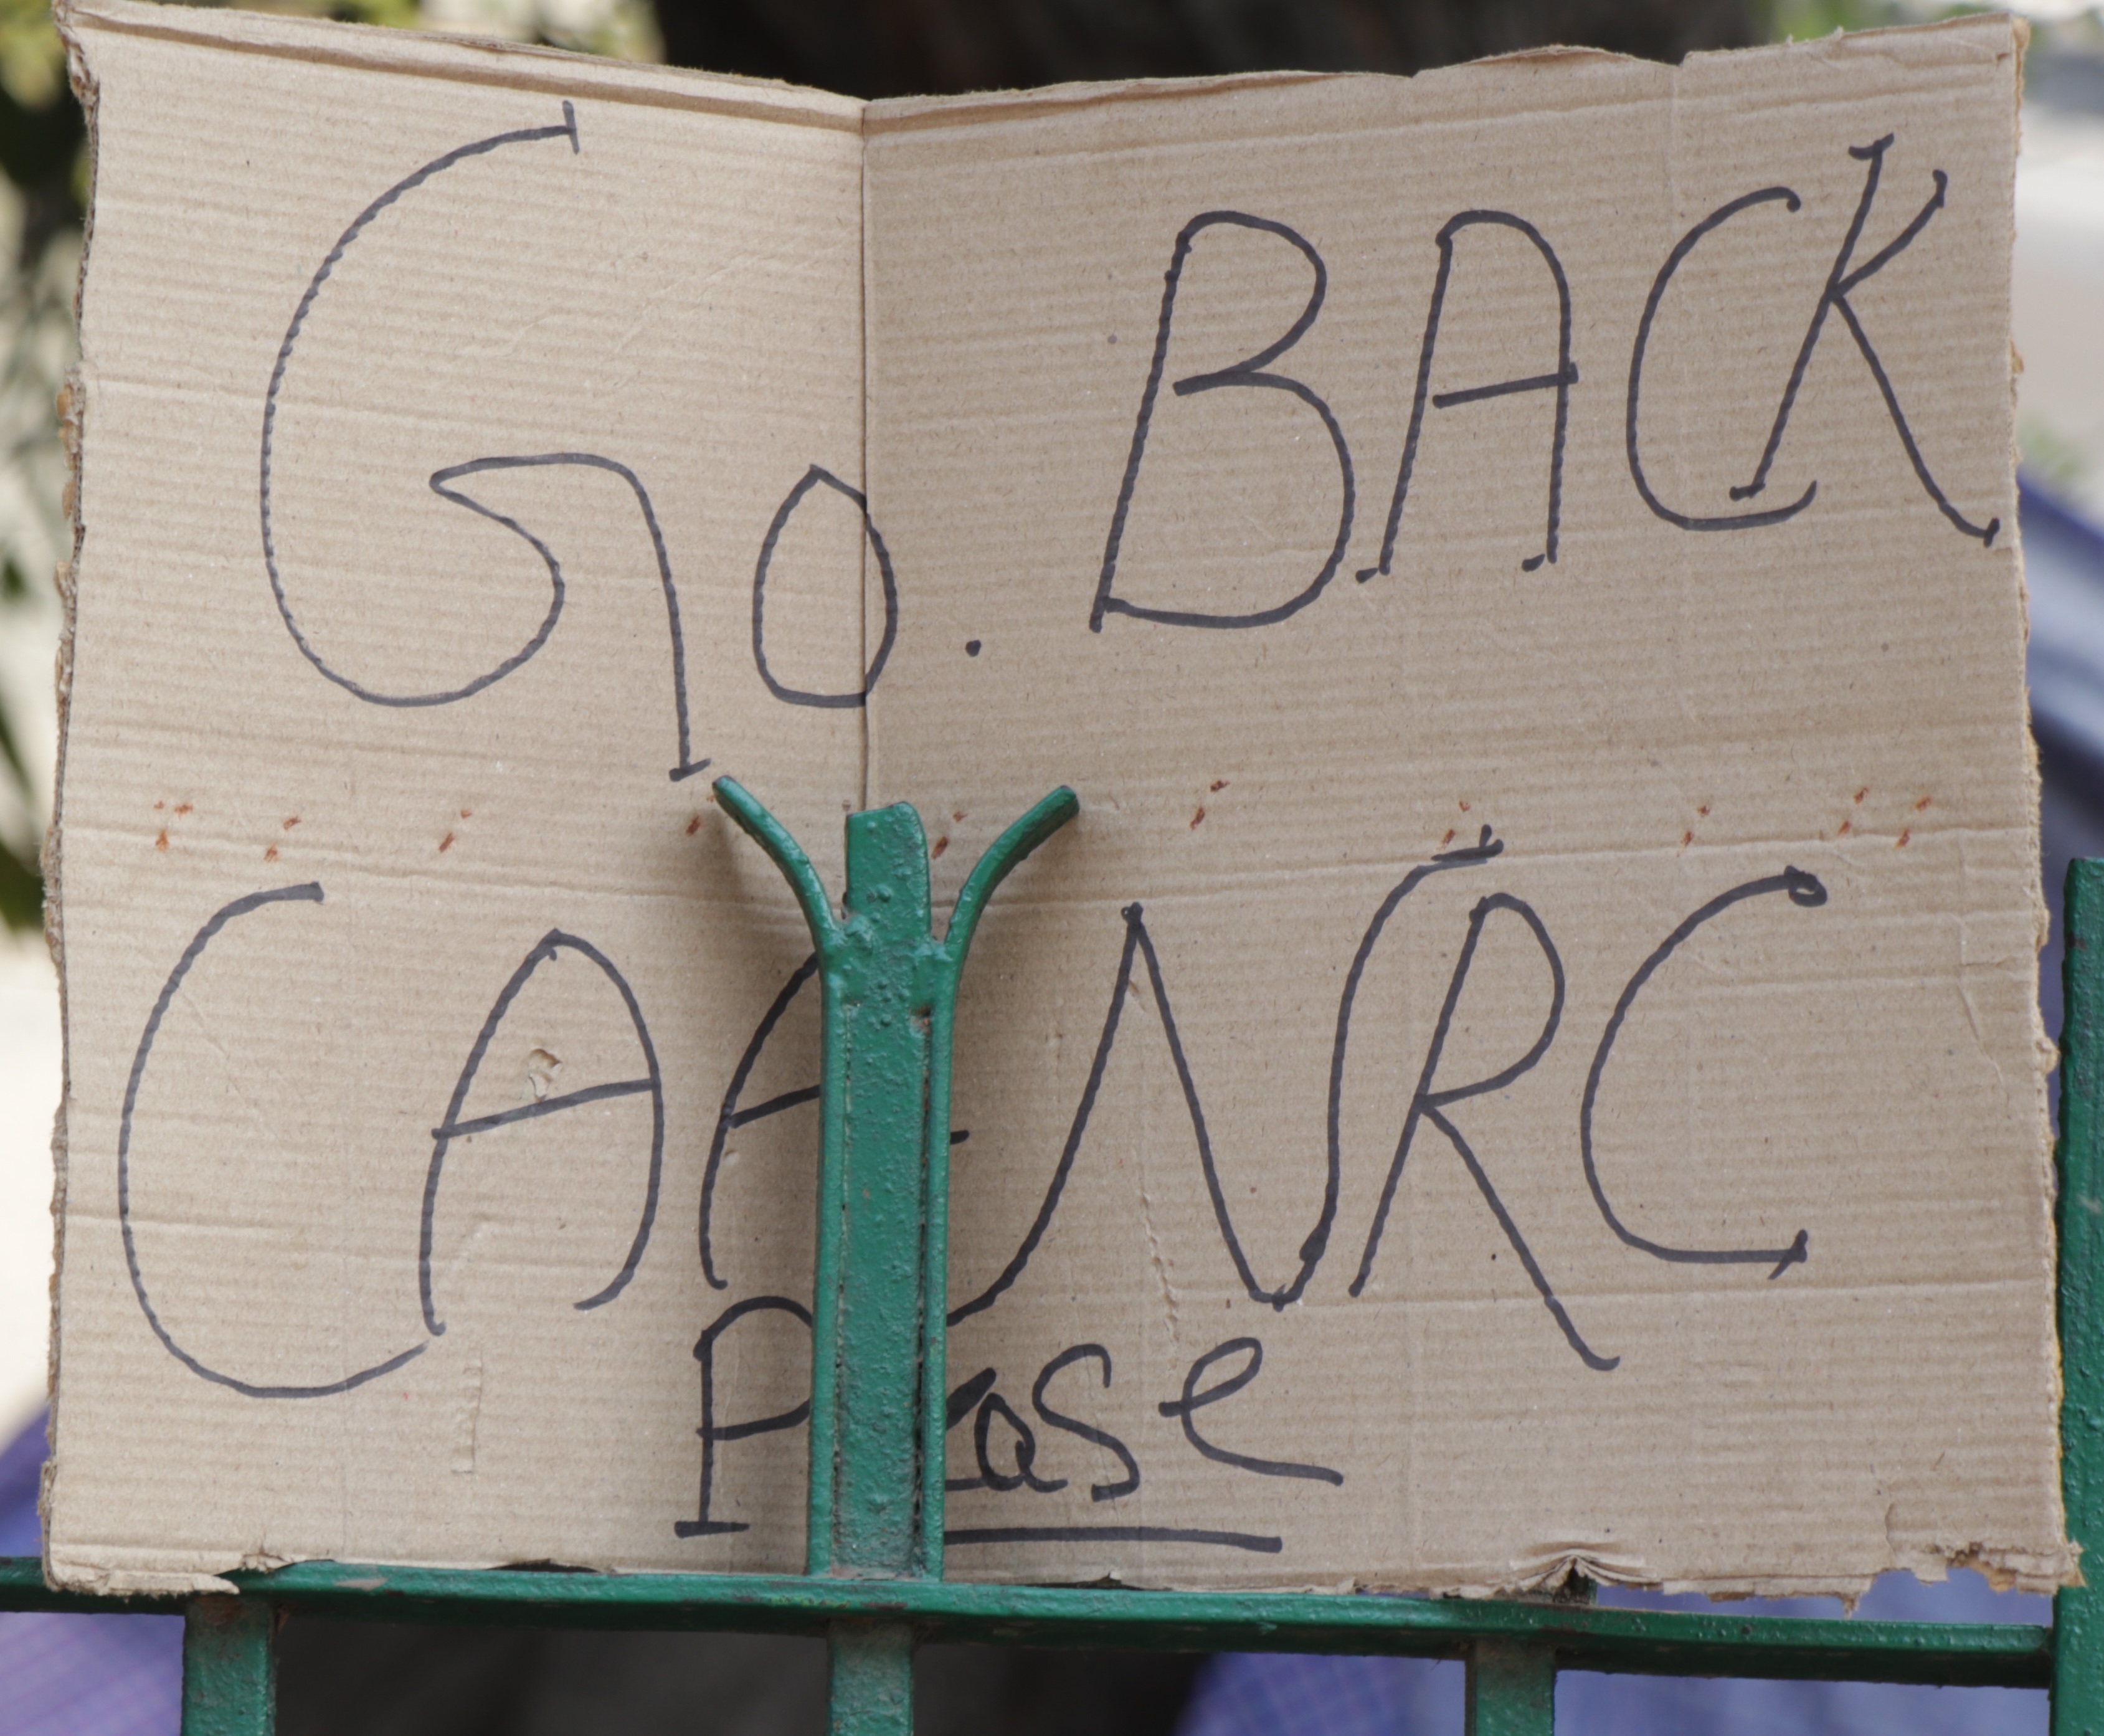 Go. BACK
CAA NRC
Please